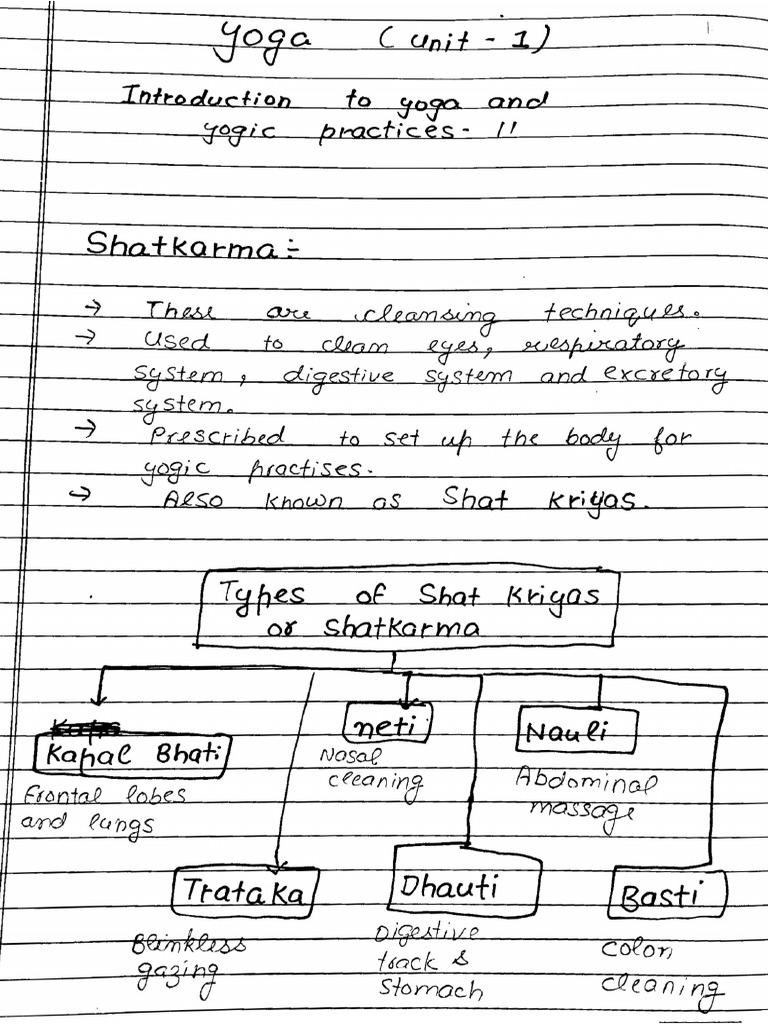 Yoga (Unit - 1)
Introduction to yoga and
yogic practices - II
Shatkarma :-
→ These are cleansing techniques.
→ Used to clean eyes, respiratory
system, digestive system and excretory
system.
→ Prescribed to set up the body for
yogic practises.
→ Also known as Shat Kriyas.
Types of Shat Kriyas
or Shatkarma
Kapal Bhati
Frontal lobes
and lungs
neti
Nasal
cleaning
Nauli
Abdominal
massage
Trataka
Blinkless
gazing
Dhauti
Digestive
track &
Stomach
Basti
Colon
cleaning